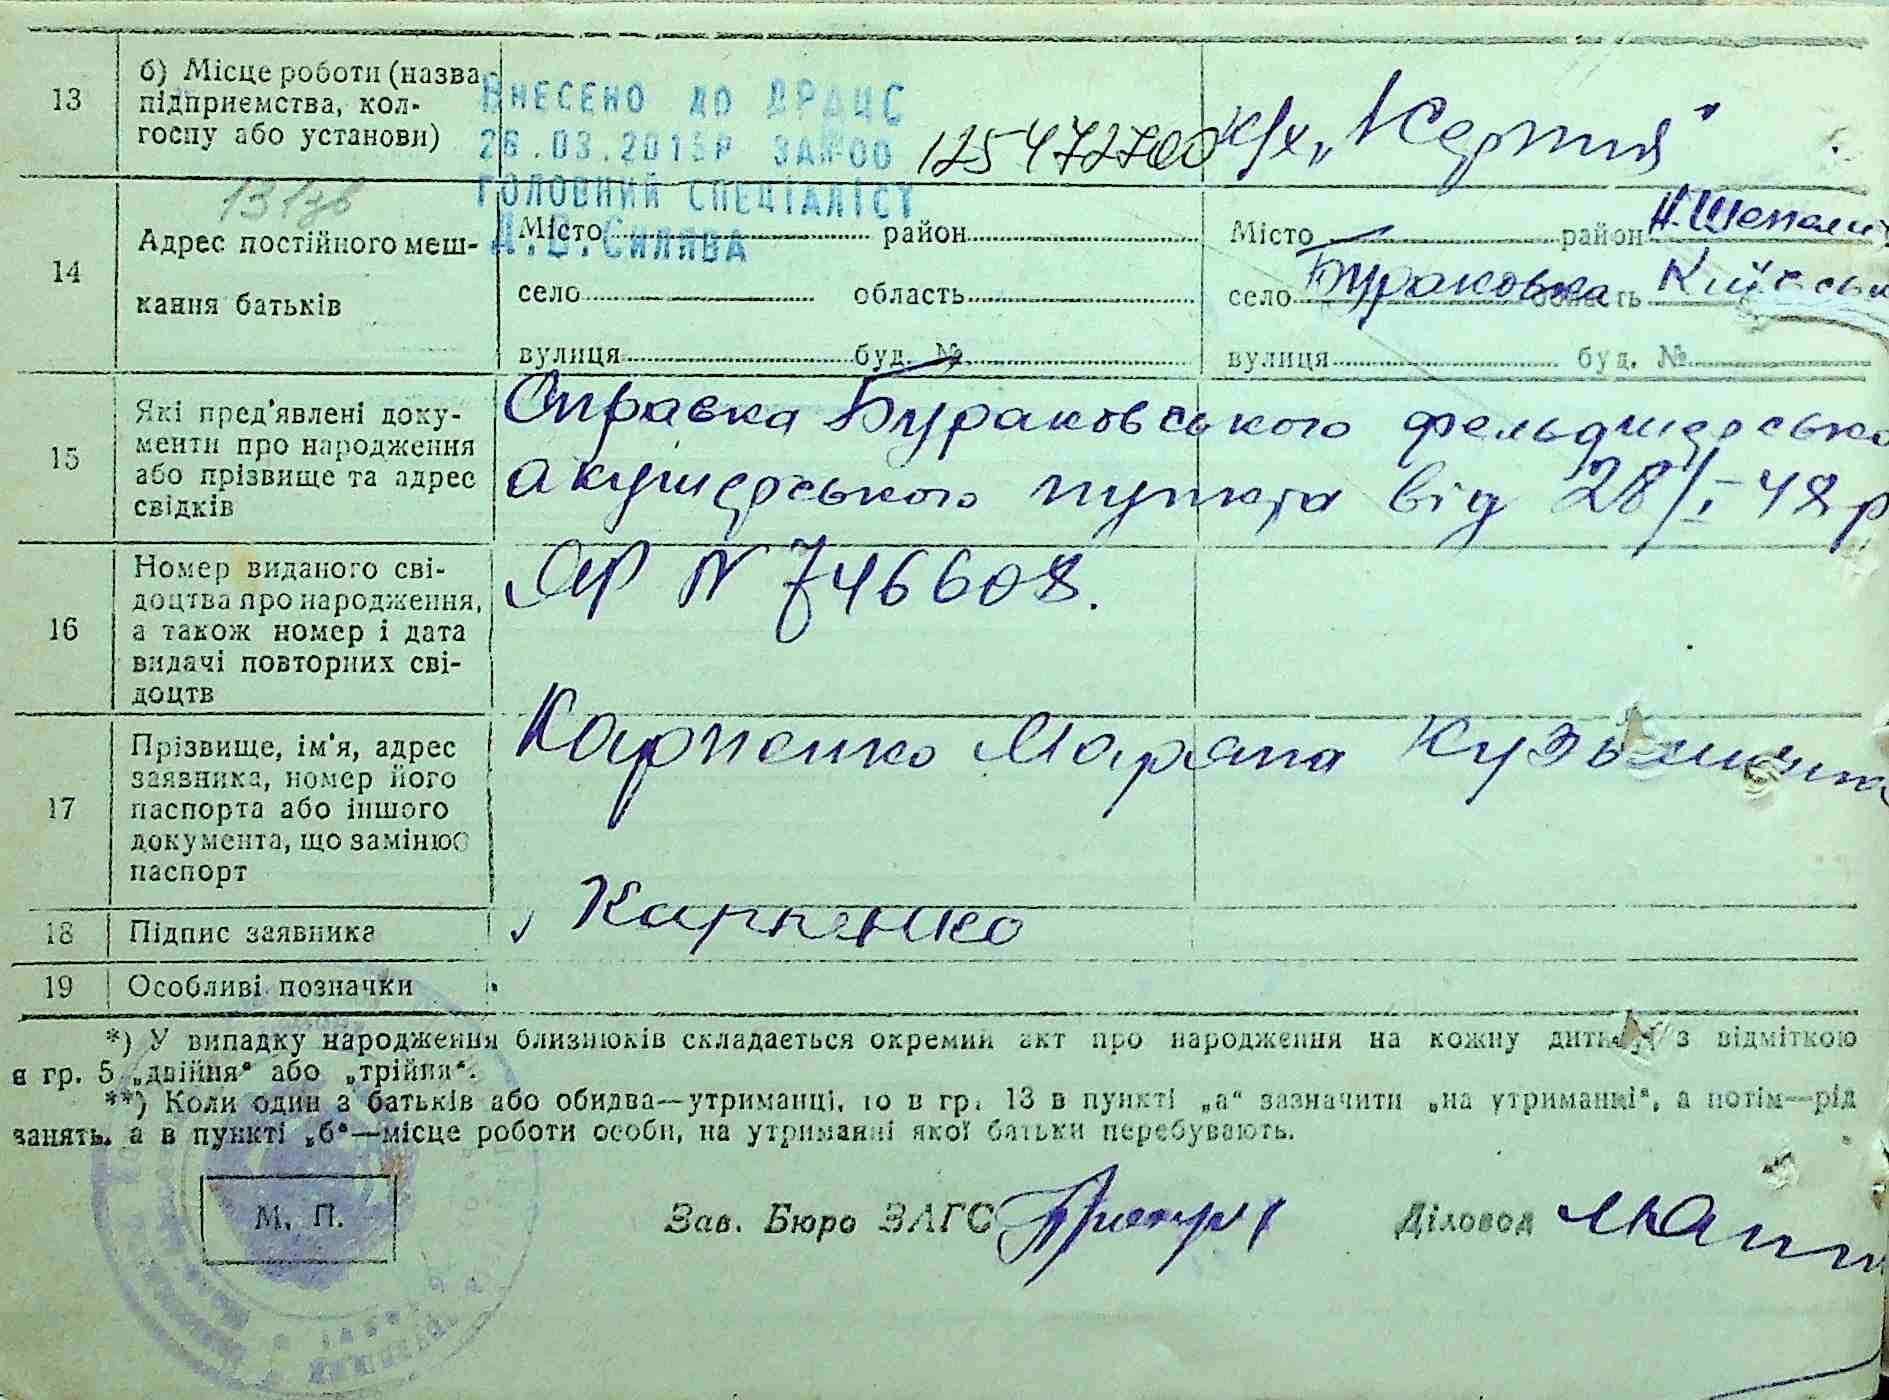 13
б) Місце роботи (назва
підприємства, кол-
госпу або установи)
ВНЕСЕНО ДО ДРАЦС
26.03.2015Р ЗА№00 125472700
ГОЛОВНИЙ СПЕЦІАЛІСТ
Д.В.СИЛЯВА
к/х „
14
Адрес постійного меш-
кання батьків
Місто район
село область
вулиця буд. №
Місто район Н.Шепели
село Бураковка область Київськ
вулиця буд. №
15
Які пред'явлені доку-
менти про народження
або прізвище та адрес
свідків
Справка Бураковського фельдшерсько
акушерського пункта від 28/I-48р
16
Номер виданого сві-
доцтва про народження,
а також номер і дата
видачі повторних сві-
доцтв
N 746608.
17
Прізвище, ім'я, адрес
заявника, номер його
паспорта або іншого
документа, що замінює
паспорт
Карпенко
18
Підпис заявника
Карпенко
19
Особливі позначки
*) У випадку народження близнюків складається окремий акт про народження на кожну дитину з відміткою
в гр. 5 „двійня“ або „трійня“.
**) Коли один з батьків або обидва—утриманці, то в гр. 13 в пункті „а“ зазначити „на утриманні“, а потім—рід
занять, а в пункті „б“—місце роботи особи, на утриманні якої батьки перебувають.
М. П.
Зав. Бюро ЗАГС
Діловод